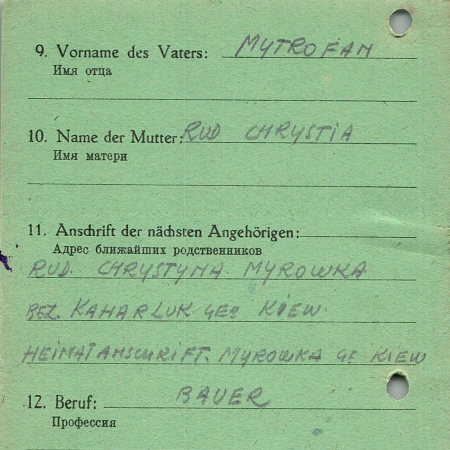 9. Vorname des Vaters: MYTROFAN
Имя отца
10. Name der Mutter: RUD CHRYSTIA
Имя матери
11. Anschrift der nächsten Angehörigen:
Адрес ближайших родственников
RUD. CHRYSTYNA MYROWKA
BEZ. KAHARLUK GEB KIEW
HEIMATANSCHRIFT. MYROWKA GE KIEW
12. Beruf: BAUER
Профессия